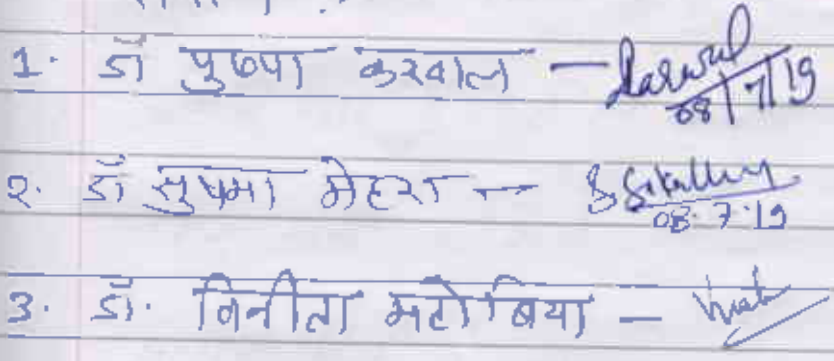 1. डॉ पुष्पा करवाल — Karwal
08/7/19
2. डॉ सुषमा मेहरा —
08.7.19
3. डॉ. विनीता मटोबिया —